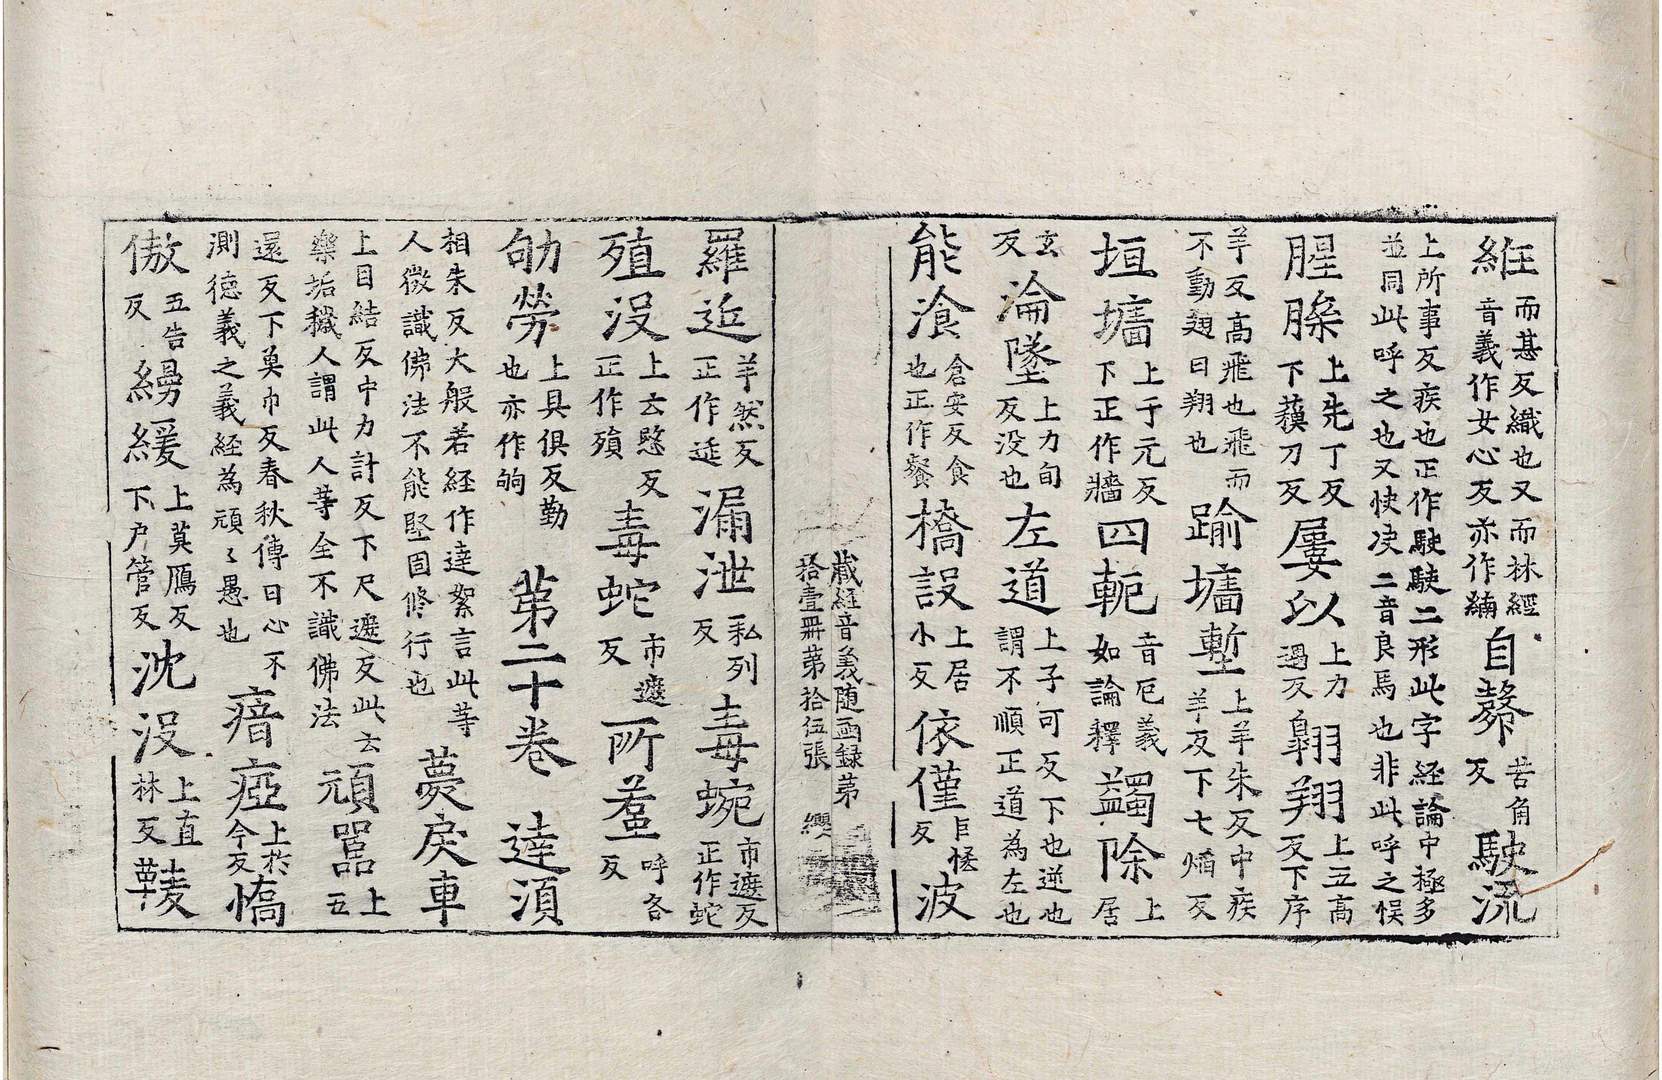 維而甚反織也又而林經音義作女心反亦作緬自𣫍苦角反駛流
上所事反疾也正作駛駛二形此字經論中極多並同此呼之也又快决二音良馬也非此呼之悮
腥臊上先丁反下蘓刀反屢以上力遇反翺翔上五高反下序
羊反高飛也飛而不動翅曰翔也踰墻塹上羊朱反中疾羊反下七焰反
垣墻上于元反下正作牆四軛音厄義如論釋蠲除上居
玄反淪墜上力旬反没也左道上子可反下也逆也謂不順正道為左也
能湌倉安反食也正作餐橋設上居小反依僅巨𢜩反波
蔵經音義随函録第拾壹冊第拾伍張 纓
羅䢋羊然反正作延漏泄私列反毒蜿市遮反正作蛇
殖没上云愍反正作殞毒蛇市遮反所蠚呼各反
劬勞上具俱反勤也亦作䠼第二十卷 達湏
相朱反大般若經作達絮言此等人微識佛法不能堅固修行也薎戾車
上目結反中力計反下尺遮反此云樂垢穢人謂此人等全不識佛法頑嚚上五
還反下莫巾反春秋傳曰心不測德義之義經為頑〻愚也瘖瘂上扵今反憍
傲五告反縵緩上莫鴈反下户管反沈没上直林反